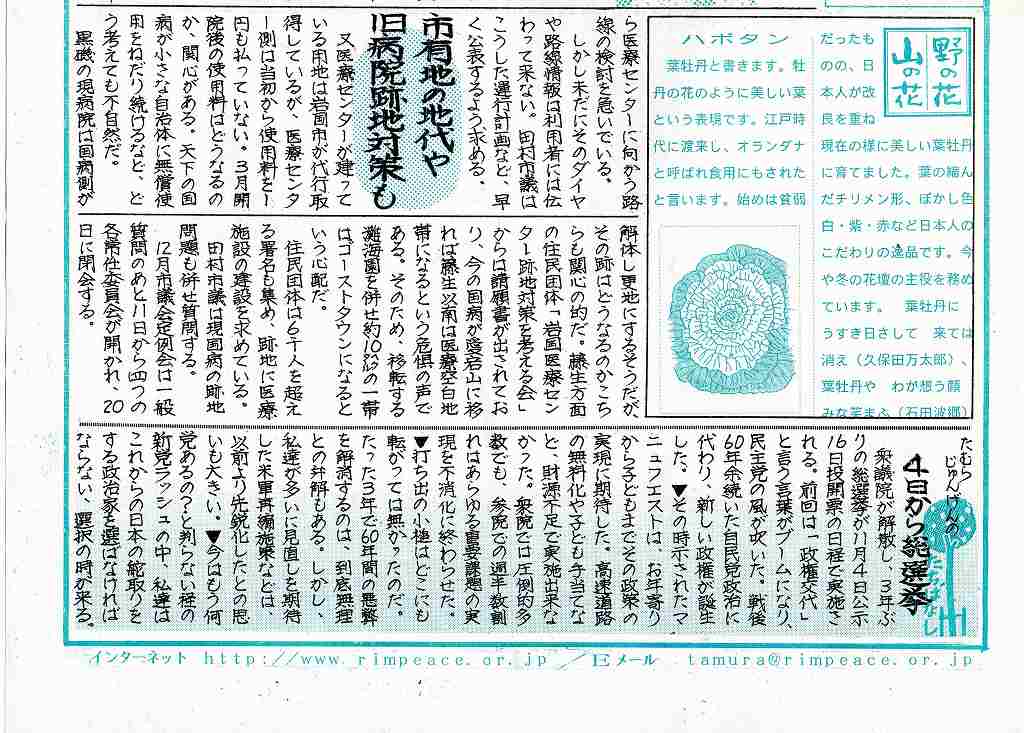 ら医療センターに向かう路
線の検討を急いでいる。
しかし未だにそのダイヤ
や路線情報は利用者には伝
わって来ない。田村市議は
こうした運行計画など、早
く公表するよう求める。
市有地の地代や
旧病院跡地対策も
又医療センターが建って
いる用地は岩国市が代行取
得しているが、医療センタ
ー側は当初から使用料を一
円も払っていない。3月開
院後の使用料はどうなるの
か、関心がある。天下の国
病が小さな自治体に無償使
用をねだり続けるなど、ど
う考えても不自然だ。
黒磯の現病院は国病側が
解体し更地にするそうだが、
その跡はどうなるのかこち
らも関心の的だ。藤生方面
の住民団体「岩国医療セン
ター跡地対策を考える会」
からは請願書が出されてお
り、今の国病が愛宕山に移
れば藤生以南は医療空白地
帯になるという危惧の声で
ある。そのため、移転する
灘海園を併せ約10㌶の一帯
はゴーストタウンになると
いう心配だ。
住民団体は6千人を超え
る署名も集め、跡地に医療
施設の建設を求めている。
田村市議は現国病の跡地
問題も併せ質問する。
12月市議会定例会は一般
質問のあと11日から四つの
各常任委員会が開かれ、20
日に閉会する。
野の花
山の花
ハボタン
葉牡丹と書きます。牡
丹の花のように美しい葉
という表現です。江戸時
代に渡来し、オランダナ
と呼ばれ食用にもされた
と言います。始めは貧弱
だったも
のの、日
本人が改
良を重ね
現在の様に美しい葉牡丹
に育てました。葉の縮ん
だチリメン形、ぼかし色
白・紫・赤など日本人の
こだわりの逸品です。今
や冬の花壇の主役を務め
ています。　葉牡丹に
うすき日さして　来ては
消え（久保田万太郎）、
葉牡丹や　わが想う顔
みな笑まふ（石田波郷）
たむら
じゅんげんの
たなばなし
4日から総選挙
衆議院が解散し、3年ぶ
りの総選挙が11月4日公示
16日投開票の日程で実施さ
れる。前回は「政権交代」
と言う言葉がブームになり、
民主党の風が吹いた。戦後
60年余続いた自民党政治に
代わり、新しい政権が誕生
した。▼その時示されたマ
ニュフェストは、お年寄り
から子どもまでその政策の
実現に期待した。高速道路
の無料化や子ども手当てな
ど、財源不足で実施出来な
かった。衆院では圧倒的多
数でも、参院での過半数割
れはあらゆる重要課題の実
現を不消化に終わらせた。
▼打ち出の小槌はどこにも
転がっては無かったのだ。
たった3年で60年間の悪弊
を解消するのは、到底無理
との弁解もある。しかし、
私達が多いに見直しを期待
した米軍再編施策などは、
以前より先鋭化したとの思
いも大きい。▼今はもう何
党あるの？と判らない程の
新党ラッシュの中、私達は
これからの日本の舵取りを
する政治家を選ばなければ
ならない、選択の時が来る。
インターネット http://www.rimpeace.or.jp ／Eメール tamura@rimpeace.or.jp